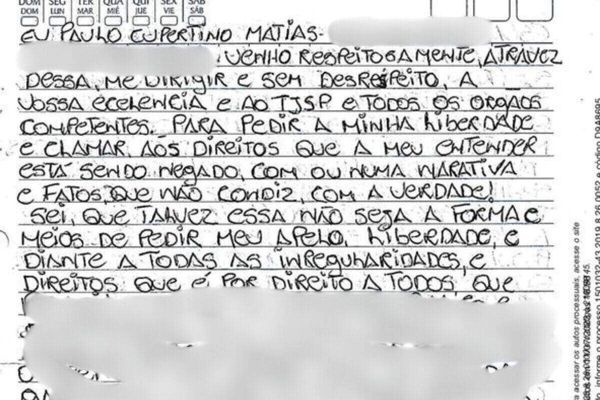 DOM SEG TER QUA QUI SEX SÁB
DOM LUN MAR MIÉ JUE VIE SÁB
EU PAULO CUPERTINO MATIAS.
, VENHO RESPEITOSAMENTE, ATRAVEZ
DESSA, ME DIRIGIR E SEM DESRESPEITO, A
VOSSA ECELENCIA E AO TJSP E TODOS OS ORGAOS
COMPETENTES. PARA PEDIR A MINHA LIBERDADE
E CLAMAR, AOS DIREITOS QUE A MEU ENTENDER
ESTÁ SENDO NEGADO, COM OU NUMA NARATIVA
E FATOS, QUE NÃO CONDIZ, COM A VERDADE!
SEI, QUE TALVEZ ESSA NÃO SEJA A FORMA E
MEIOS DE PEDIR MEU APELO, LIBERDADE, E
DIANTE A TODAS AS IRREGULARIDADES, E
DIREITOS, QUE É POR DIREITO A TODOS, QUE
acessar os autos processuais, acesse o site
informe o processo